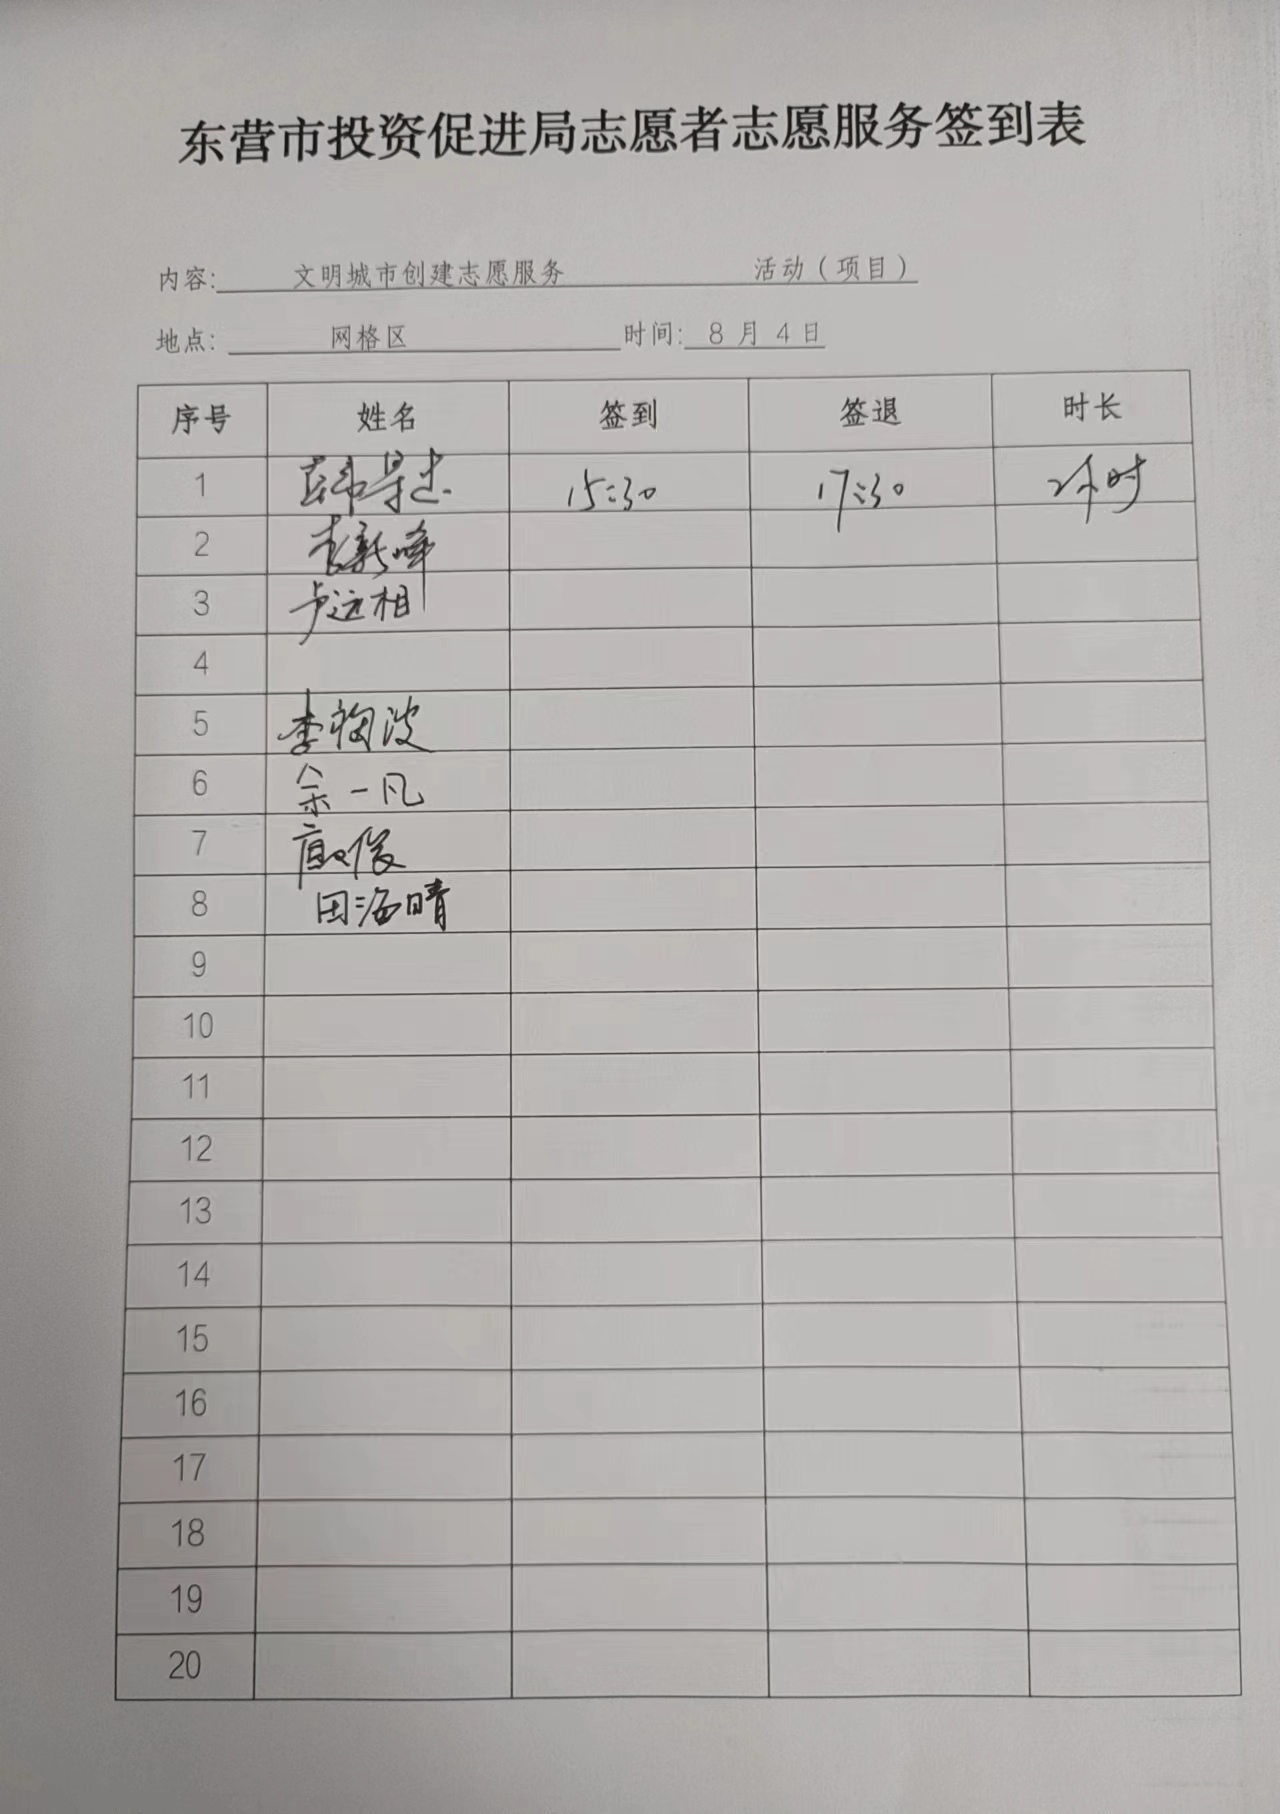 东营市投资促进局志愿者志愿服务签到表
内容: 文明城市创建志愿服务 活动（项目）
地点: 网格区 时间: 8 月 4 日
序号 姓名 签到 签退 时长
1 15:30 17:30 2小时
2 李新峰
3 卢远相
4
5 李海波
6 余一凡
7
8 田海晴
9
10
11
12
13
14
15
16
17
18
19
20